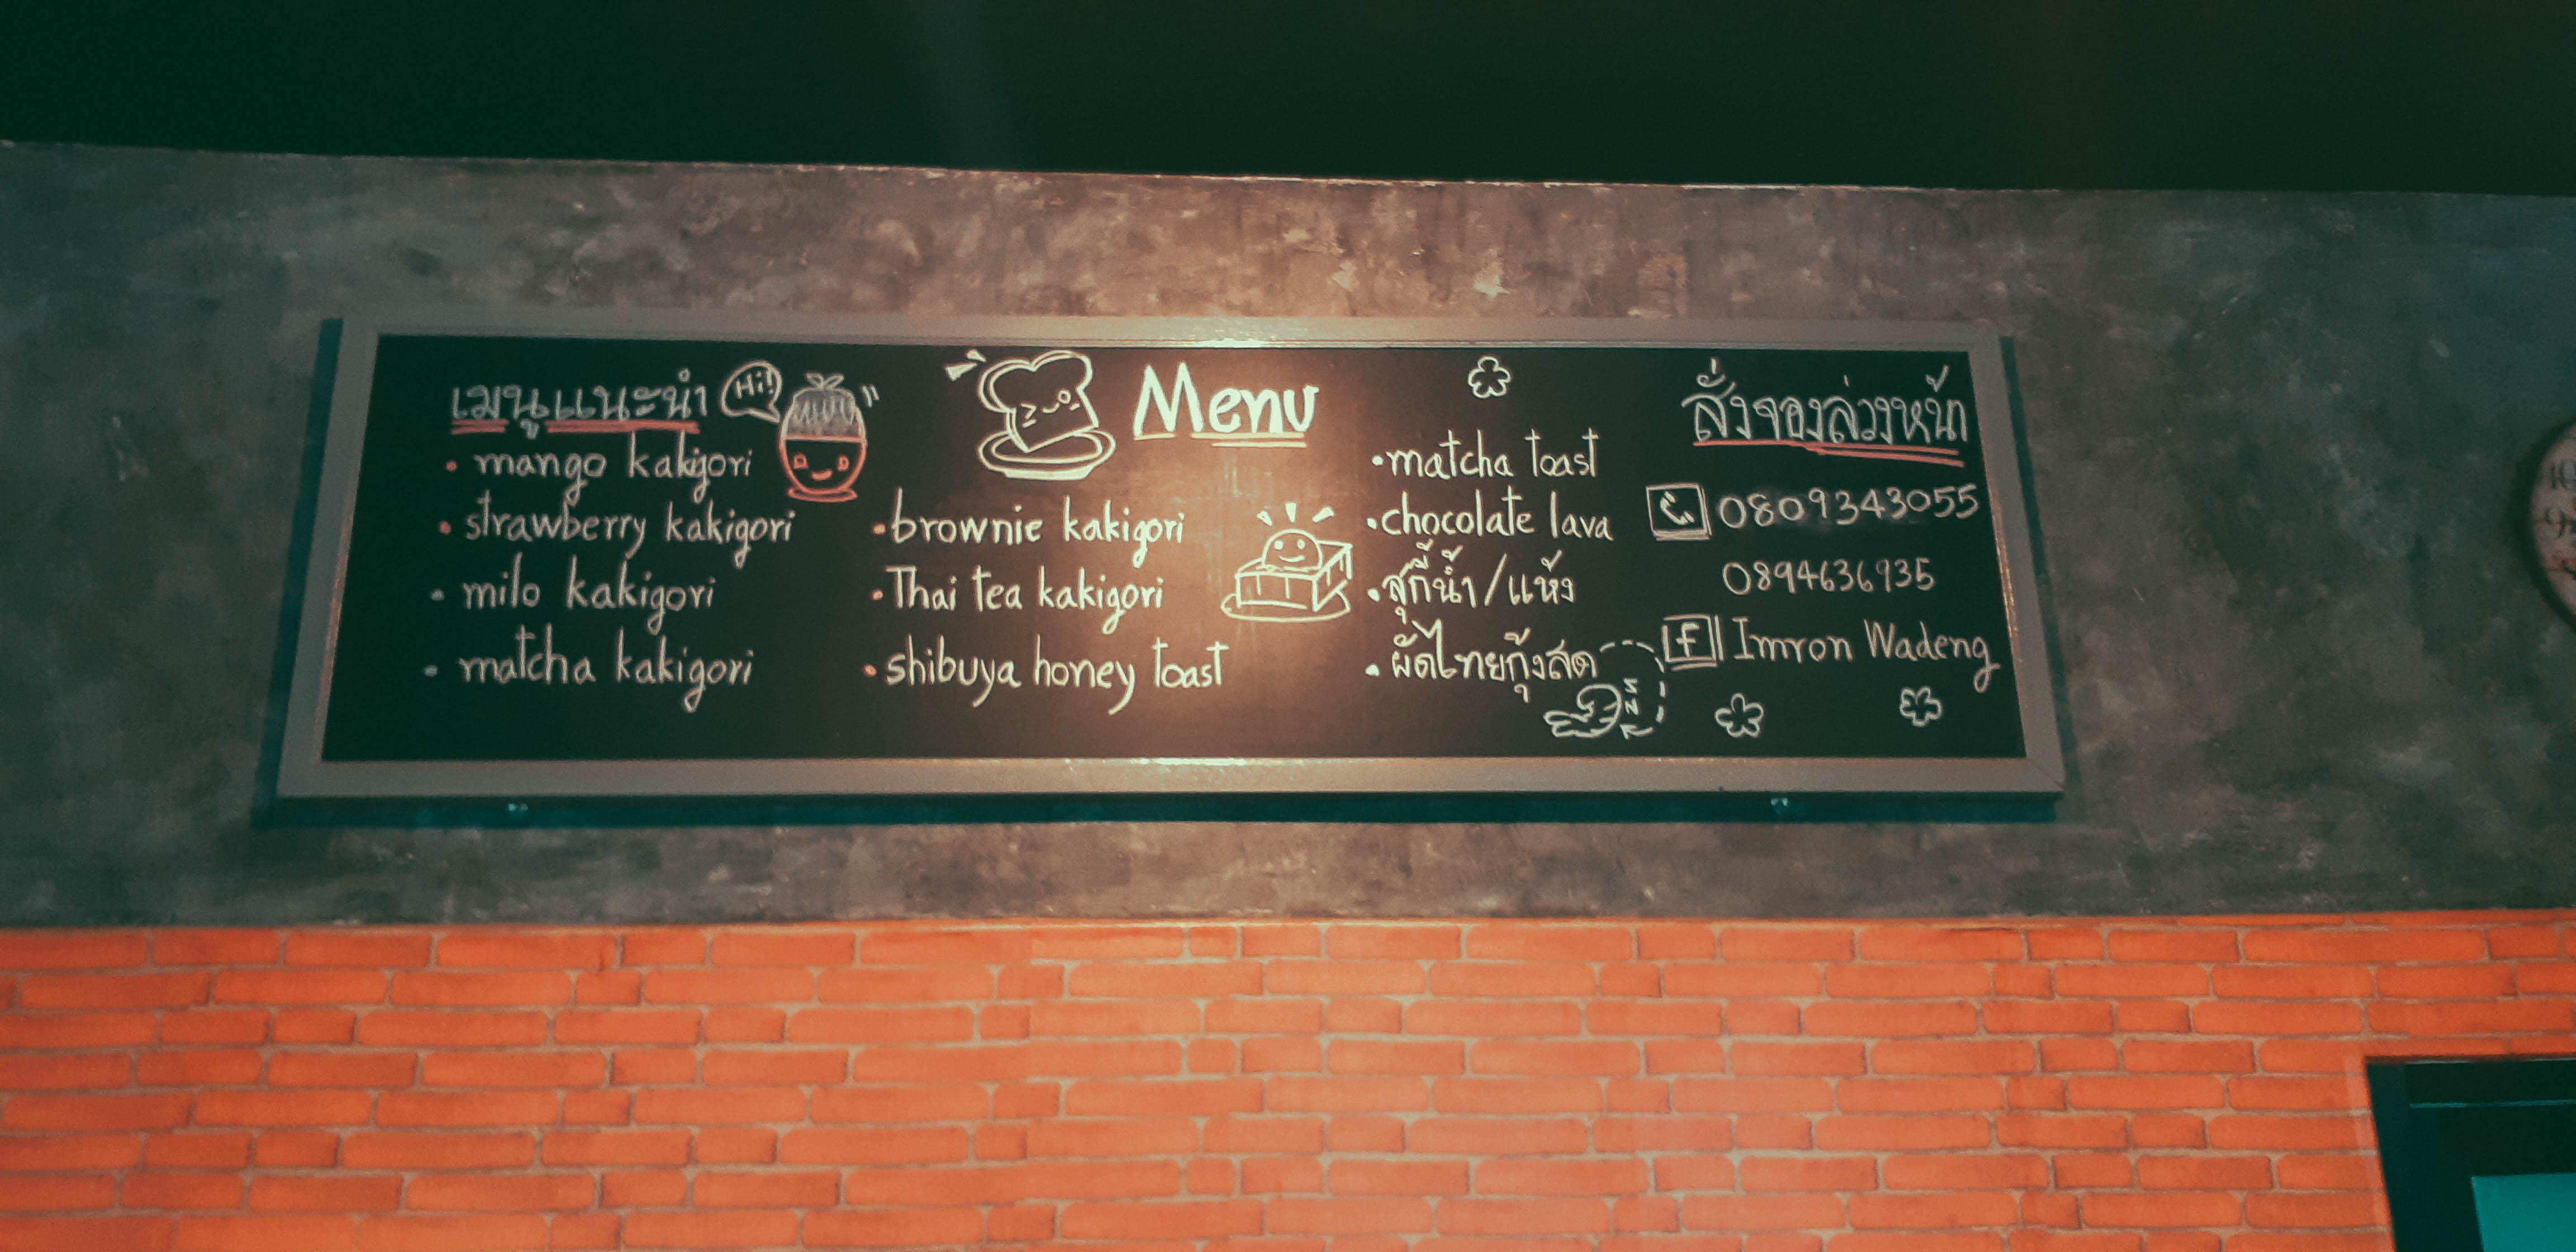 เมนูแนะนำ
Hi!
• mango kakigori
• strawberry kakigori
• milo kakigori
• matcha kakigori
Menu
• brownie kakigori
• Thai tea kakigori
• shibuya honey toast
• matcha toast
• chocolate lava
• สุกี้น้ำ/แห้ง
• ผัดไทยกุ้งสด
สั่งจองล่วงหน้า
0809343055
0894636935
f Imron Wadeng